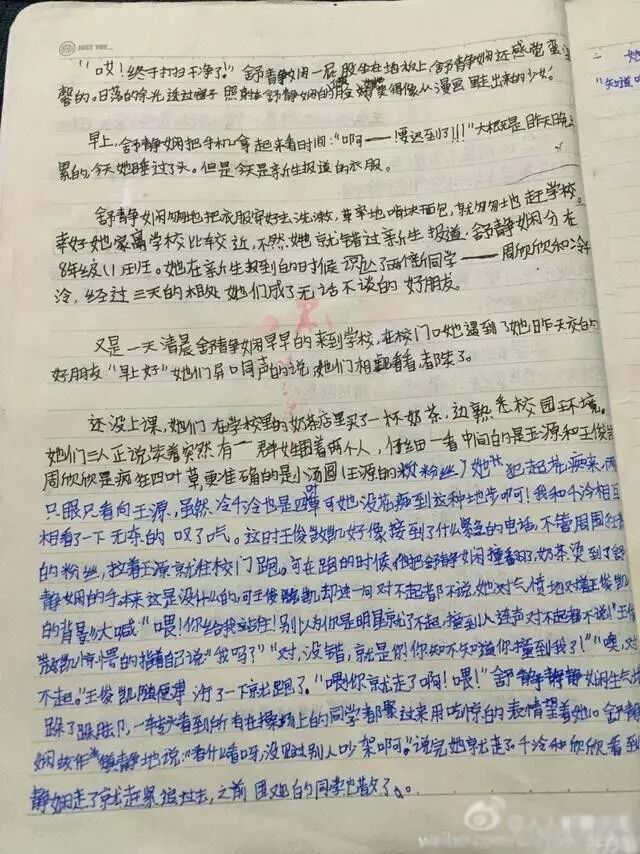 JUST YOU...
"哎!终于打扫干净了。"舒静娴一屁股坐在地板上,舒静娴还感觉蛮
馨的。日落的余光透过窗子照射在舒静娴的脸
美得像从漫画里走出来的少女。
早上,舒静娴把手机拿起来看时间:"啊——!要迟到了!!!"大概是昨天晚上
累的,今天她睡过了头。但是今天是新生报道的衣服。
舒静娴匆匆地把衣服穿好去洗漱,草率地啃块面包,就匆匆地赶学校。
幸好她家离学校比较近,不然她就错过新生报道。舒静娴分在
8年级11班。她在新生报到的时候认识了两个新同学——周欣欣和冷千
冷,经过三天的相处她们成了无话不谈的好朋友。
又是一天清晨舒静娴早早的来到学校,在校门口她遇到了她昨天交的
好朋友"早上好"她们异口同声的说,她们相看看都笑了。
还没上课,她们在学校里的奶茶店里买了一杯奶茶,边熟悉校园环境。
她们三人正说笑着突然有一群女生围着两个人,仔细一看中间的是王源和王俊凯
周欣欣是疯狂四叶草,更准确的是小汤圆(王源的粉丝)她犯起花痴来,两
只眼只看向王源,虽然冷千冷也是四叶草可她没花痴到这种地步啊!我和千冷相互
相看了一下无奈的叹了口气。这时王俊凯好像接到了什么紧急的电话,不管周围狂
的粉丝,拉着王源就往校门跑。可在跑的时候他把舒静娴撞到了,奶茶烫到了舒
静娴的手本来这是没什么的,可王俊凯却连一句对不起都不说,她对气愤地对着王俊凯
的背影大喊:"喂!你给我站住!别以为你是明星就了不起,撞到人连声对不起都不说!"王俊
凯惊愕的指着自己说"我吗?""对,没错,就是你!你知不知道你撞到我了!""噢,对
不起。"王俊凯随便说了一下就跑了。"喂!你就走了啊!喂!"舒静静娴生气地
跺了跺脚,一转头看到所有在操场上的同学都聚过来用吃惊的表情望着她。舒静
娴故作镇静地说:"看什么看呀,没见过别人吵架啊。"说完她就走了。千冷和欣欣看到
静娴走了就赶紧追过去,之前围观的同学也散了。
她
"知道
weibo.com